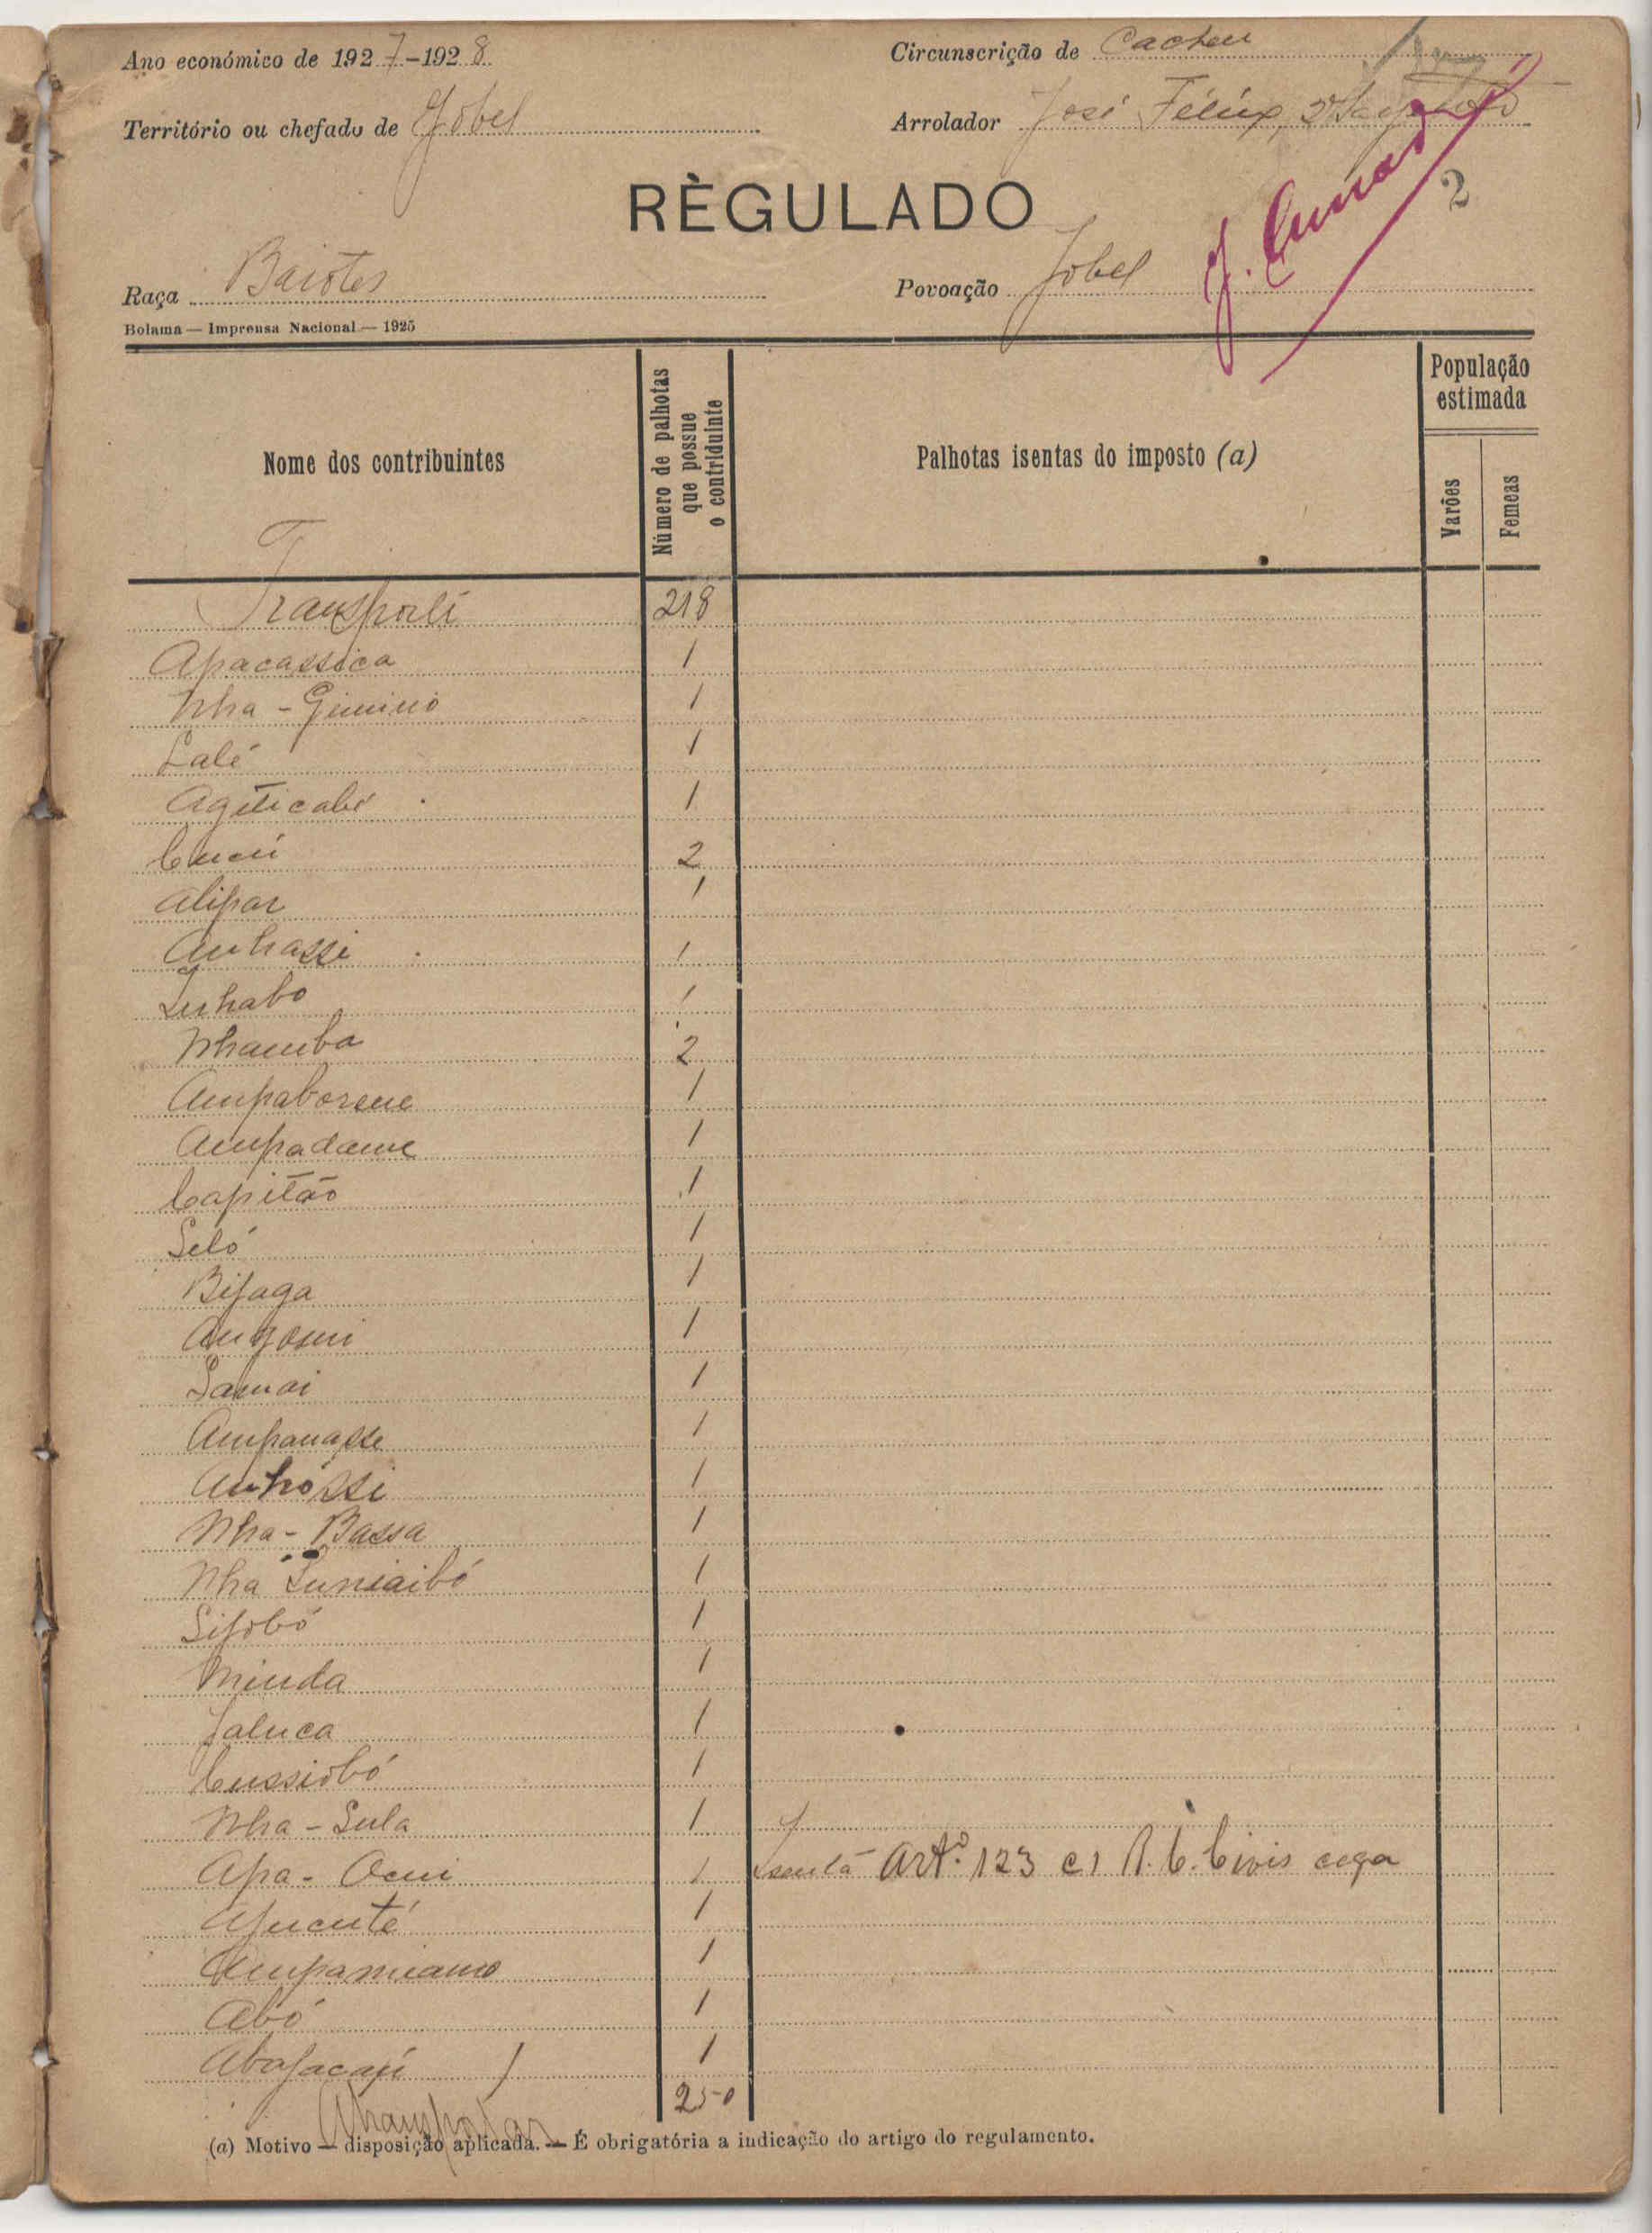 Ano económico de 1927-1928
Circunscrição de Cacheu
Território ou chefado de Jobel
Arrolador José Félix, 2º Sargento
RÈGULADO
2
J. Cunha
Raça Baiotes
Povoação Jobel
Bolama — Imprensa Nacional — 1925
Nome dos contribuintes
Número de palhotas que possue o contriduinte
Palhotas isentas do imposto (a)
População estimada
Varões
Femeas
Transporte 218
Apacassica 1
Nha - Giminió 1
Lalé 1
Agiticabé 1
Cucú 2
Alipar 1
Anhassi 1
Inhabo 1
Nhamba 2
Ampaborene 1
Ampadame 1
Capitão 1
Seló 1
Bijaga 1
Angomi 1
Samai 1
Ampanasse 1
Anhóssi 1
Nha - Bassa 1
Nha Luniaibó 1
Sijobó 1
Minda 1
Jaluca 1
Cussiobó 1
Nha - Sula 1
Apa - Ocui 1 Isenta Artº. 123 R. C. Civis cega
Ajucuté 1
Ampamiamo 1
Abó 1
Abajacají 1
A transportar 250
(a) Motivo — disposição aplicada. — É obrigatória a indicação do artigo do regulamento.